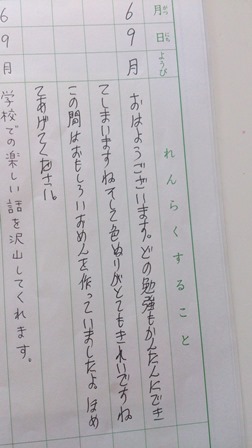 月日ようび
れんらくすること
6
9
月
おはようございます。どの勉強もかんたんにでき
てしまいますねそして色ぬりがとてもきれいですね
この間はおもしろいおめんを作っていましたよ ほめ
てあげてください。
6
9
月
学校での楽しい話を沢山してくれます。